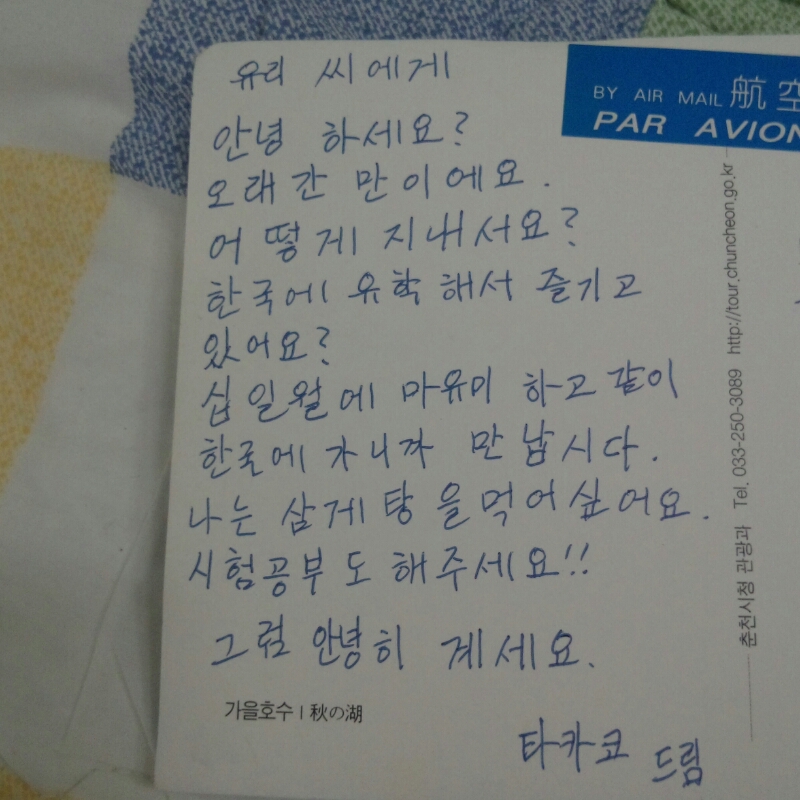 유리 씨에게
BY AIR MAIL 航空
PAR AVION
안녕 하세요?
오래간 만이에요.
어떻게 지내서요?
한국에 유학해서 즐기고
있어요?
십일월에 마유미 하고 같이
한국에 가니까 만납시다.
나는 삼게탕을먹어싶어요.
시험공부도 해주세요!!
그럼 안녕히 계세요.
가을호수 | 秋の湖
타카코 드림
춘천시청 관광과 Tel. 033-250-3089 http://tour.chuncheon.go.kr